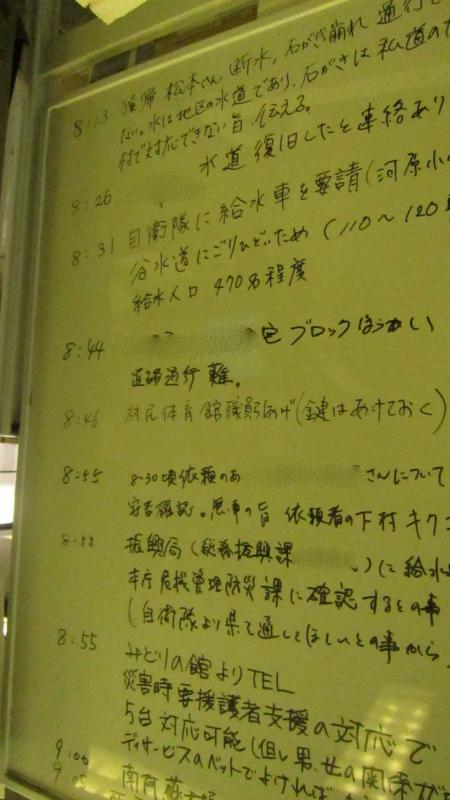 8:13 猿帰 松本さん 断水。石がき崩れ 通行
ない。水は地区の水道であり、石がきは私道の
村で対応できない旨、伝える。
8:26 水道 復旧したと連絡あり
8:31 自衛隊に給水車を要請(河原小
谷水道にごりひどいため(110〜120
給水人口 470名程度
8:44 宅ブロックほうかい
道路通行難。
8:46 村民体育館職員あけ(鍵はあけておく)
8:55 8:30頃依頼のあ さんについて
安否確認。無事の旨 依頼者の下村キク
8:55 振興局(総務振興課 )に給水
本庁危機管理防災課に確認するとの事
(自衛隊より県で通してほしいとの事から
8:55 みどりの館よりTEL
災害時要援護者支援の対応で
5台対応可能(但し男、女の関係が
デイサービスのベットでよければ
9:00 南阿蘇
9:05